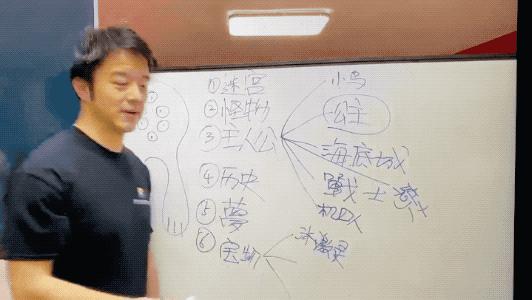 ①迷宫
②怪物
③主人公
④历史
⑤夢
⑥宝物
小鸟
公主
海底城
戰士
机器人